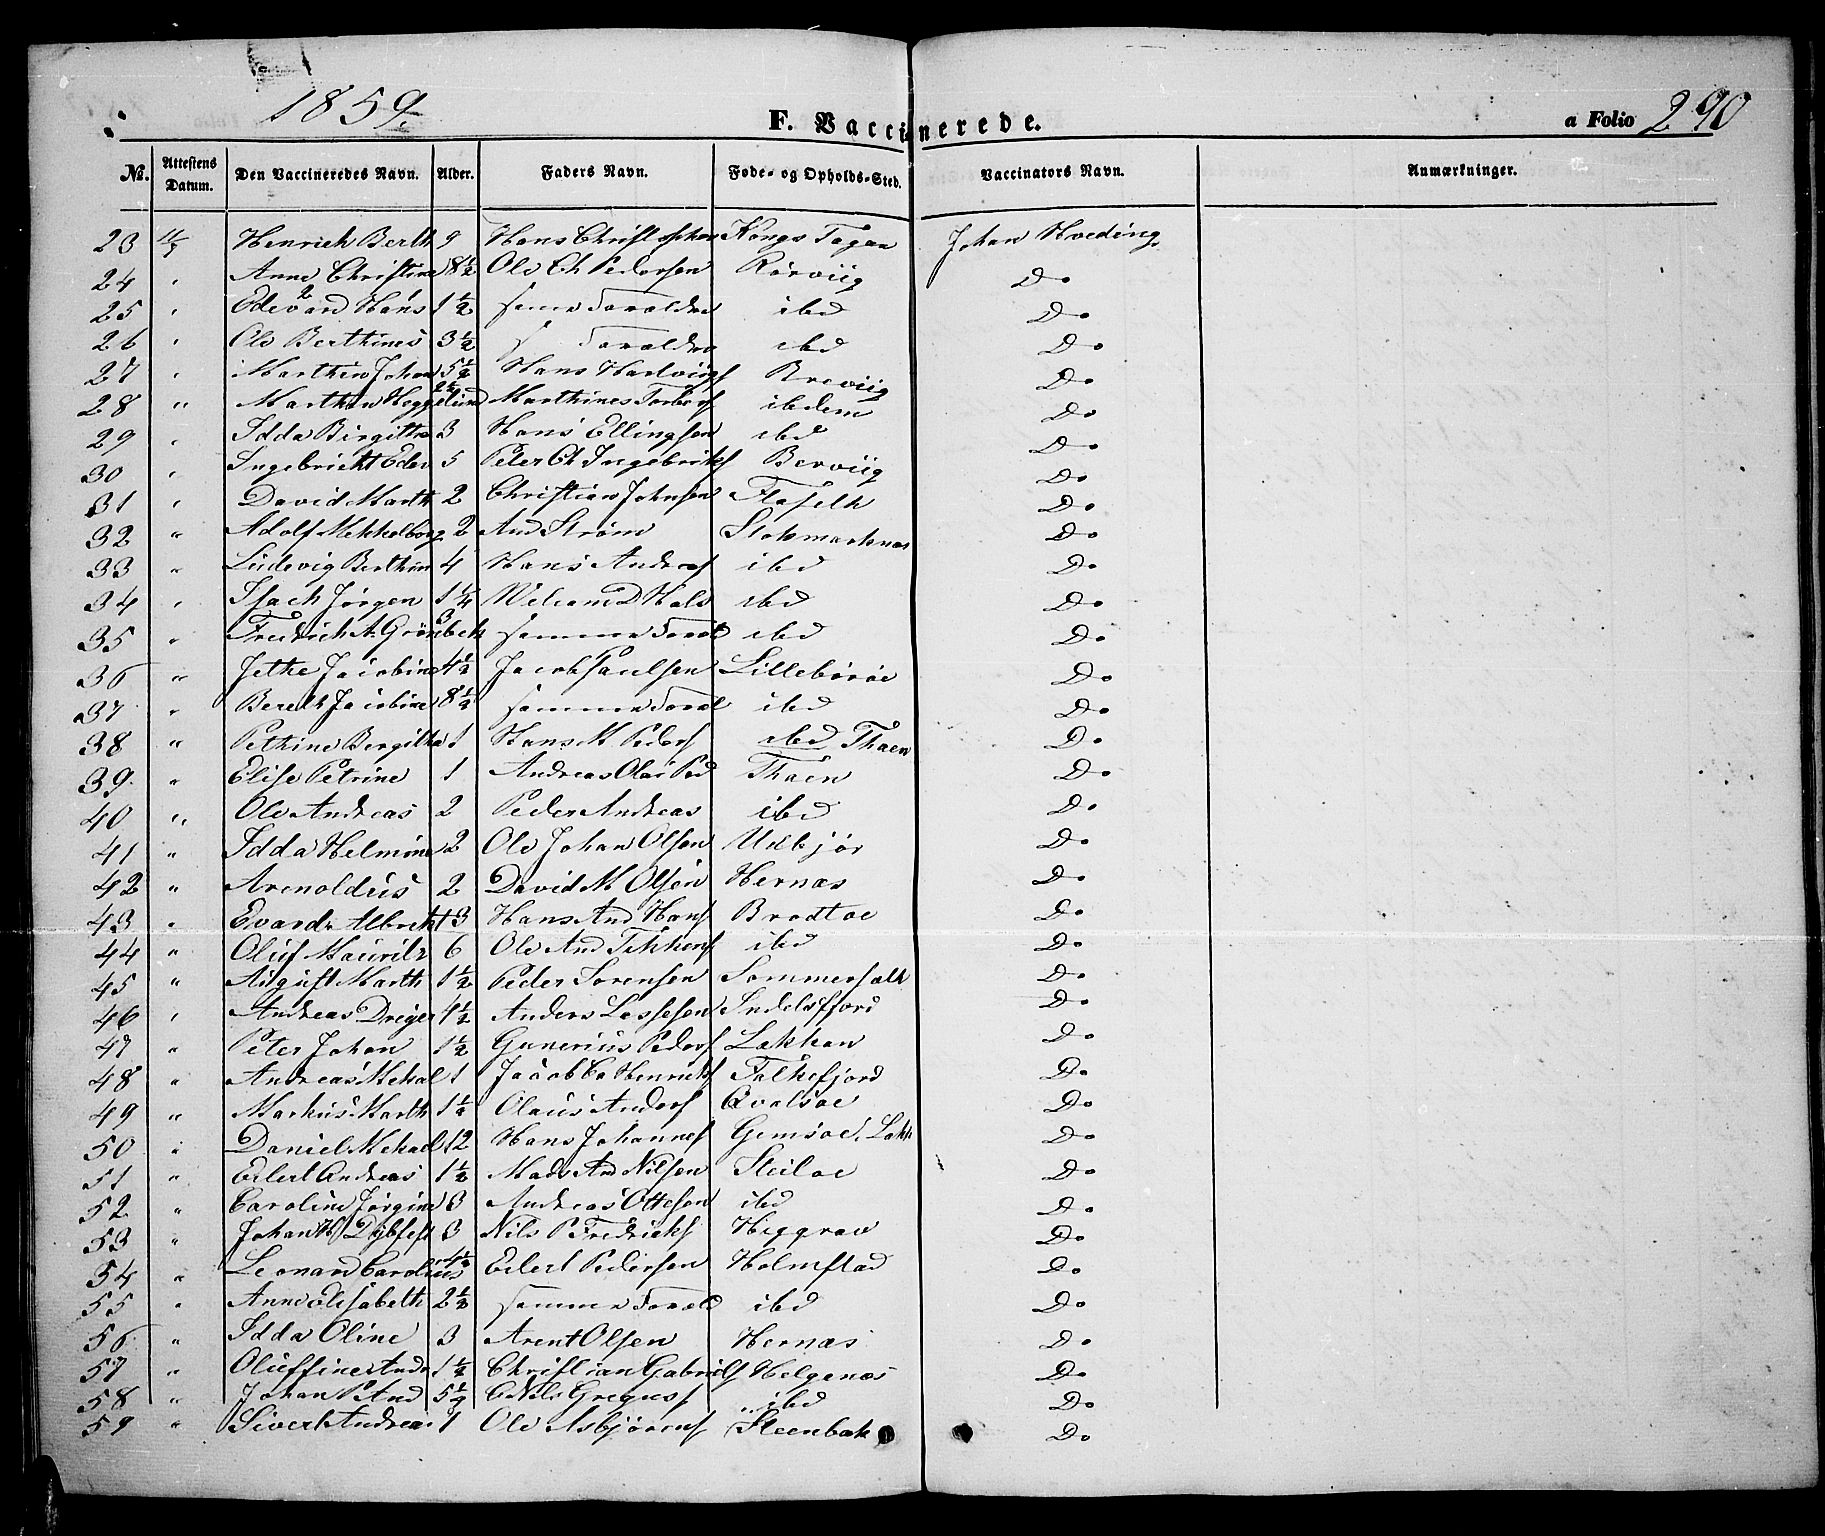 1859.
F. Vaccinerede.
a Folio 290
No. Attestens Datum. Den Vaccineredes Navn. Alder. Faders Navn. Føde- og Opholds-Sted. Vaccinators Navn. Anmærkninger.
23 11/7 Henrich Berth 9 Hans Christophsen Kongs Johan Hveding
24 " Anne Christine 8½ Ole Ch Pedersen Rørviig Do
25 " Edevard Hans 1½ samme Foræld ibd Do
26 " Ole Berthines 3½ s Forældre ibd Do
27 " Marthin Johan 5½ Hans Hartvigs Breviig Do
28 " Marthin Heggelund 2½ Marthines Torbers ibdem Do
29 " Idda Birgitte 3 Hans Ellingsen ibd Do
30 " Ingebricht Eder 5 Peter Ch Ingebrikts Berviig Do
31 " David Marth 2 Christian Johnsen Do
32 " Adolf Mekkelborg 2 And Strøm Stokmarknæs Do
33 " Ludevig Berthin 4 Hans Anders ibd Do
34 " Isach Jørgen 1¼ D Hals ibd Do
35 " Fredrich A. Grønbek 3 samme Foræld ibd Do
36 " Jethe Jacobine 4½ Jacob Paulsen Lillebørøe Do
37 " Bereth Jacobine 8½ samme Foræl ibd Do
38 " Pethine Bergitha 1 Hans M Peders ibd Thaen Do
39. " Elise Petrine 1 Andreas Olai Ped Thaen Do
40 " Ole Andreas 2 Peder Andreas ibd Do
41 " Idda Helmine 2 Ole Johan Olsen Uldbjør Do
42 " Arenoldus 2 David M Olsen Hernæs Do
43 " Evard Albreht 13 Hans And Hans Bradtøe Do
44 " Oluf Mauritz 6 Ole And Tikkens ibd Do
45 " August Marth 1½ Peder Sørensen Sommersæth Do
46 " Andreas Dreyer 4½ Anders Lassesen Indelsfjord Do
47 " Peter Johan 1½ Gunerius Peders Løkken Do
48 " Andreas Mekal 1 Jacob Ca Henriks Falkefjord Do
49 " Markus Marth 1½ Olaus Anders Qvalsøe Do
50 " Daniel Mekael 12 Hans Johannes Gimsøe, Løkk Do
51 " Edert Andreas 1½ Mads And Nilsen Steiløe Do
52 " Caroline Jørgine 3 Andreas Ottesen ibd Do
53 " Johan H Dybfest 3 Nils P Fredricks Higgrav Do
54 " Leonard Carolius 4½ Edert Pedersen Holmstad Do
55 " Anne Elisabeth 2½ samme Foræld ibd Do
56 " Idda Oline 3 Arent Olsen Hernæs Do
57 " Oluffine Andr 1½ Christian Gabriels Helgenæs Do
58 " Johan P And 5½ Nils Gregus ibd Do
59 " Sivert Andreas 1 Ole Asbjørns Steenbak Do